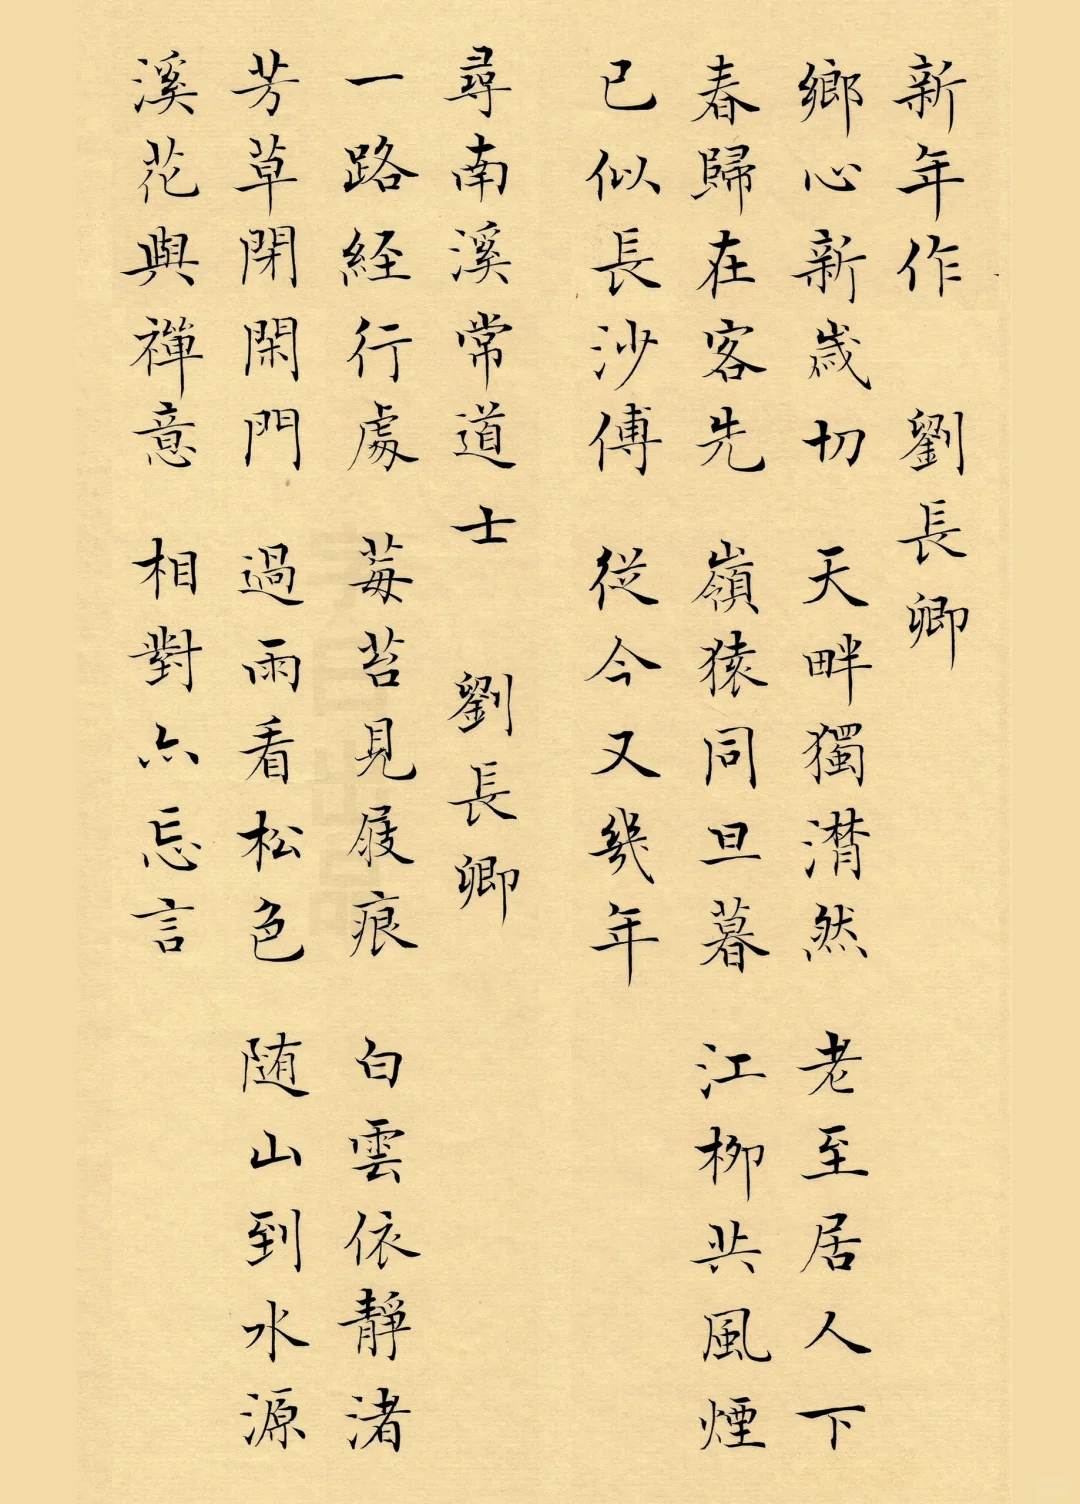 新年作 劉長卿
鄉心新歲切 天畔獨潸然 老至居人下
春歸在客先 嶺猿同旦暮 江柳共風煙
已似長沙傅 從今又幾年
尋南溪常道士 劉長卿
一路経行處 莓苔見屐痕 白雲依靜渚
芳草閉閑門 過雨看松色 随山到水源
溪花與禪意 相對亦忘言